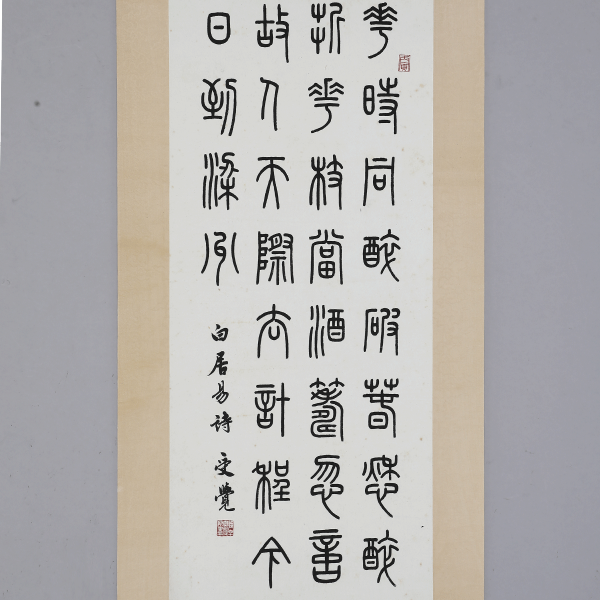 丙寅
花時同醉破春愁醉
折花枝當酒籌忽憶
故人天際去計程今
日到梁州
白居易詩 受覺